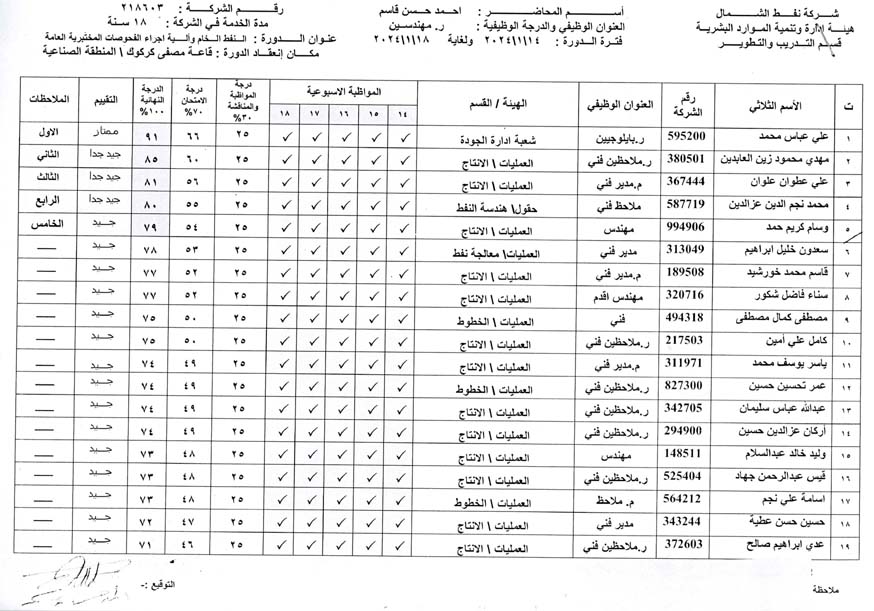 شركة نفط الشمال
هيئة إدارة وتنمية الموارد البشرية
قسم التدريب والتطوير
أسم المحاضر : احمد حسن قاسم
العنوان الوظيفي والدرجة الوظيفية : ر. مهندسين
فترة الدورة : ٢٠٢٤/١/١٤ ولغاية ٢٠٢٤/١/١٨
رقم الشركة : ٢١٨٦٠٣
مدة الخدمة في الشركة : ١٨ سنة
عنوان الدورة : النفط الخام وألية اجراء الفحوصات المختبرية العامة
مكان إنعقاد الدورة : قاعة مصفى كركوك \ المنطقة الصناعية
ت الأسم الثلاثي رقم الشركة العنوان الوظيفي الهيئة / القسم المواظبة الاسبوعية درجة المواظبة والمناقشة ٣٠% درجة الامتحان ٧٠% الدرجة النهائية ١٠٠% التقييم الملاحظات
١٤ ١٥ ١٦ ١٧ ١٨
١ علي عباس محمد 595200 ر.بايلوجيين شعبة ادارة الجودة ✓ ✓ ✓ ✓ ✓ ٢٥ ٦٦ ٩١ ممتاز الاول
٢ مهدي محمود زين العابدين 380501 ر.ملاحظين فني العمليات \ الانتاج ✓ ✓ ✓ ✓ ✓ ٢٥ ٦٠ ٨٥ جيد جدا الثاني
٣ علي عطوان علوان 367444 م.مدير فني العمليات \ الانتاج ✓ ✓ ✓ ✓ ✓ ٢٥ ٥٦ ٨١ جيد جدا الثالث
٤ محمد نجم الدين عزالدين 587719 ملاحظ فني حقول\ هندسة النفط ✓ ✓ ✓ ✓ ✓ ٢٥ ٥٥ ٨٠ جيد جدا الرابع
٥ وسام كريم حمد 994906 مهندس العمليات \ الانتاج ✓ ✓ ✓ ✓ ✓ ٢٥ ٥٤ ٧٩ جيد الخامس
٦ سعدون خليل ابراهيم 313049 مدير فني العمليات\ معالجة نفط ✓ ✓ ✓ ✓ ✓ ٢٥ ٥٣ ٧٨ جيد —
٧ قاسم محمد خورشيد 189508 م.مدير فني العمليات \ الانتاج ✓ ✓ ✓ ✓ ✓ ٢٥ ٥٢ ٧٧ جيد —
٨ سناء فاضل شكور 320716 مهندس اقدم العمليات \ الانتاج ✓ ✓ ✓ ✓ ✓ ٢٥ ٥٢ ٧٧ جيد —
٩ مصطفى كمال مصطفى 494318 فني العمليات \ الخطوط ✓ ✓ ✓ ✓ ✓ ٢٥ ٥٠ ٧٥ جيد —
١٠ كامل علي أمين 217503 ر.ملاحظين فني العمليات \ الانتاج ✓ ✓ ✓ ✓ ✓ ٢٥ ٥٠ ٧٥ جيد —
١١ ياسر يوسف محمد 311971 م.مدير فني العمليات \ الانتاج ✓ ✓ ✓ ✓ ✓ ٢٥ ٤٩ ٧٤ جيد —
١٢ عمر تحسين حسين 827300 ر.ملاحظين فني العمليات \ الخطوط ✓ ✓ ✓ ✓ ✓ ٢٥ ٤٩ ٧٤ جيد —
١٣ عبدالله عباس سليمان 342705 ر.ملاحظين فني العمليات \ الانتاج ✓ ✓ ✓ ✓ ✓ ٢٥ ٤٩ ٧٤ جيد —
١٤ أركان عزالدين حسين 294900 ر.ملاحظين فني العمليات \ الانتاج ✓ ✓ ✓ ✓ ✓ ٢٥ ٤٩ ٧٤ جيد —
١٥ وليد خالد عبدالسلام 148511 مهندس العمليات \ الانتاج ✓ ✓ ✓ ✓ ✓ ٢٥ ٤٨ ٧٣ جيد —
١٦ قيس عبدالرحمن جهاد 525404 ر.ملاحظين فني العمليات \ الانتاج ✓ ✓ ✓ ✓ ✓ ٢٥ ٤٨ ٧٣ جيد —
١٧ اسامة علي نجم 564212 م. ملاحظ العمليات \ الخطوط ✓ ✓ ✓ ✓ ✓ ٢٥ ٤٨ ٧٣ جيد —
١٨ حسين حسن عطية 343244 مدير فني العمليات \ الانتاج ✓ ✓ ✓ ✓ ✓ ٢٥ ٤٧ ٧٢ جيد —
١٩ عدي ابراهيم صالح 372603 ر.ملاحظين فني العمليات \ الانتاج ✓ ✓ ✓ ✓ ✓ ٢٥ ٤٦ ٧١ جيد —
التوقيع :-
ملاحظة